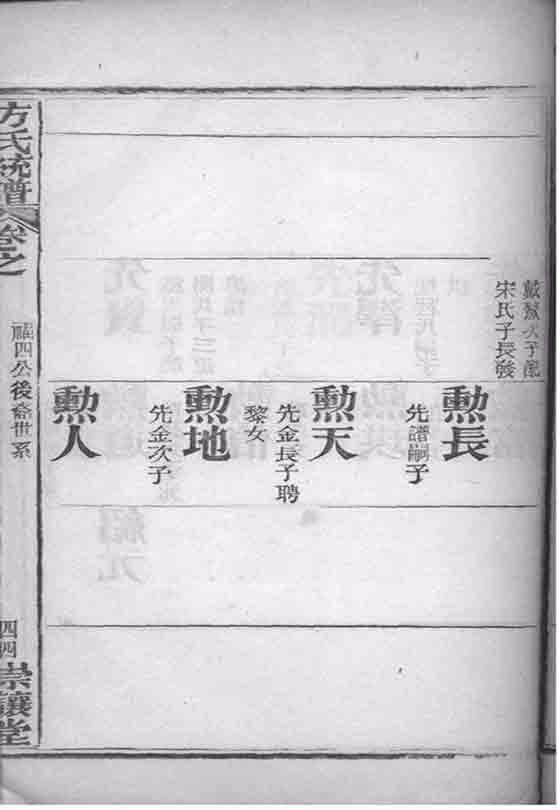 戴鰲次子配
宋氏子長發
勲長
先譜嗣子
勲天
先金長子聘
黎女
勲地
先金次子
勲人
方氏統譜
卷之
四公後裔世系
四四
崇讓堂